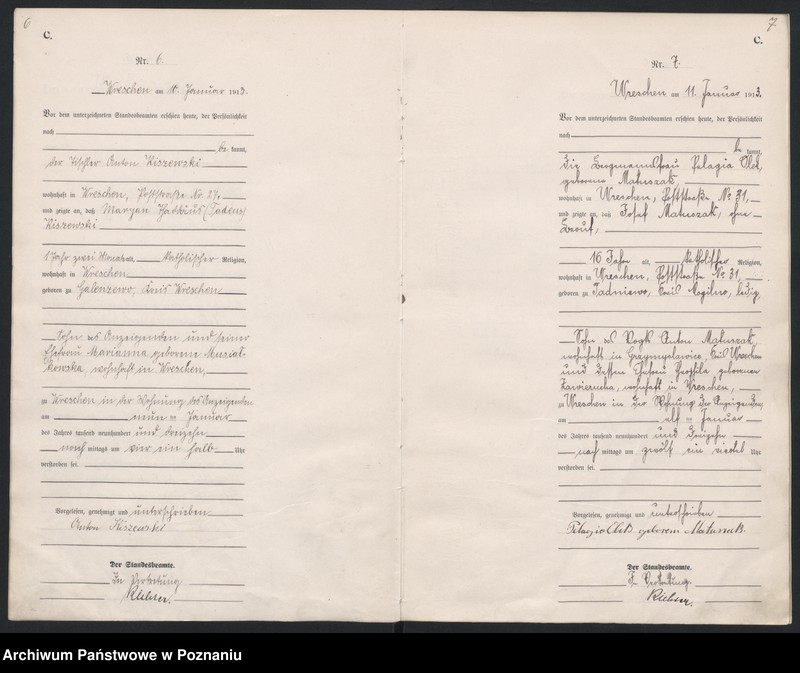 6
C.
Nr. 6
Wreschen am 10. Januar 1913.
Vor dem unterzeichneten Standesbeamten erschien heute, der Persönlichkeit
nach
be kannt,
der Tischler Anton Kiszewski
wohnhaft in Wreschen, Poststraße Nr.
und zeigte an, daß Maryan (Tadeus)
Kiszewski
1 Jahr zwei Monate alt, katholischer Religion,
wohnhaft in Wreschen
geboren zu Kreis Wreschen
Sohn des Anzeigenden und seiner
Ehefrau Marianna geborene Musial-
kowska, wohnhaft in Wreschen,
zu Wreschen in der Wohnung des Anzeigenden
am neun ten Januar
des Jahres tausend neunhundert und dreizehn
nach mittags um vier ein halb Uhr
verstorben sei.
Vorgelesen, genehmigt und unterschrieben
Anton Kiszewski
Der Standesbeamte.
In Vertretung
7.
C.
Nr. 7.
Wreschen am 11. Januar 1913.
Vor dem unterzeichneten Standesbeamten erschien heute, der Persönlichkeit
nach
be kannt,
die Bergmannsfrau Pelagia
geborene Matuszak,
wohnhaft in Wreschen, Poststraße No 31,
und zeigte an, daß Josef Matuszak, ohne
Beruf,
16 Jahre alt, katholischer Religion,
wohnhaft in Wreschen, Poststraße No 31
geboren zu Tadniewo, Kreis Mogilno, ledig,
Sohn des Vogt Anton Matuszak,
wohnhaft in Grzymyslawice, Kreis Wreschen
und dessen Ehefrau geborenen
wohnhaft in Wreschen,
zu Wreschen in der Wohnung der Anzeigenden
am elf ten Januar
des Jahres tausend neunhundert und dreizehn
nach mittags um zwölf ein viertel Uhr
verstorben sei.
Vorgelesen, genehmigt und unterschrieben
Pelagia geboren Matuszak.
Der Standesbeamte.
In Vertretung.
Archiwum Państwowe w Poznaniu